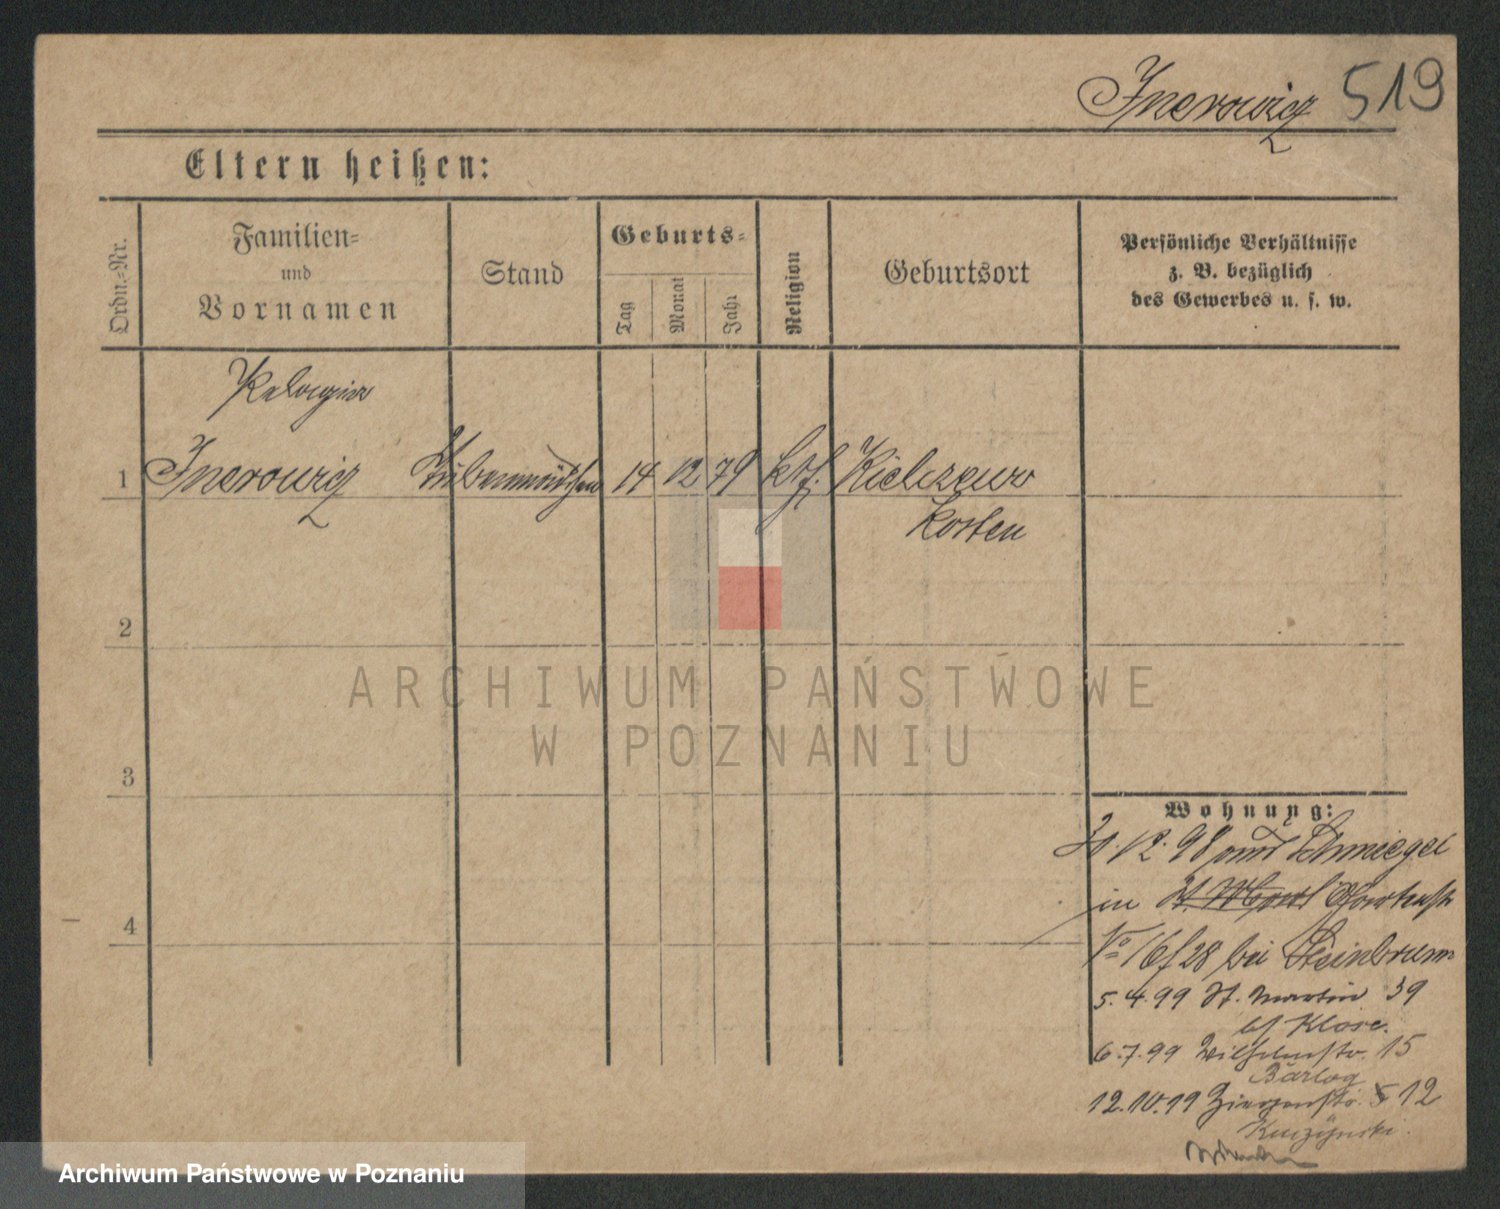 Jnerowicz 519
Eltern heißen:
Ordn.-Nr.
Familien-
und
Vornamen
Stand
Geburts-
Tag
Monat
Jahr
Religion
Geburtsort
Persönliche Verhältnisse
z. B. bezüglich
des Gewerbes u. s. w.
Pelagia
1 Jnerowicz Stubenmädchen 14 12 79 kth. Kielczewo
Kosten
2
3
4
ARCHIWUM PAŃSTWOWE
W POZNANIU
Wohnung:
12. 98 aus Schmiegel
in St. Gartenstr
No 16 f 28 bei Steinbrunn
5. 4. 99 St. Martin 39
bei Klose.
6. 7. 99 Wilhelmstr. 15
Barlog
12. 10. 99 12
Kuczynski
Archiwum Państwowe w Poznaniu